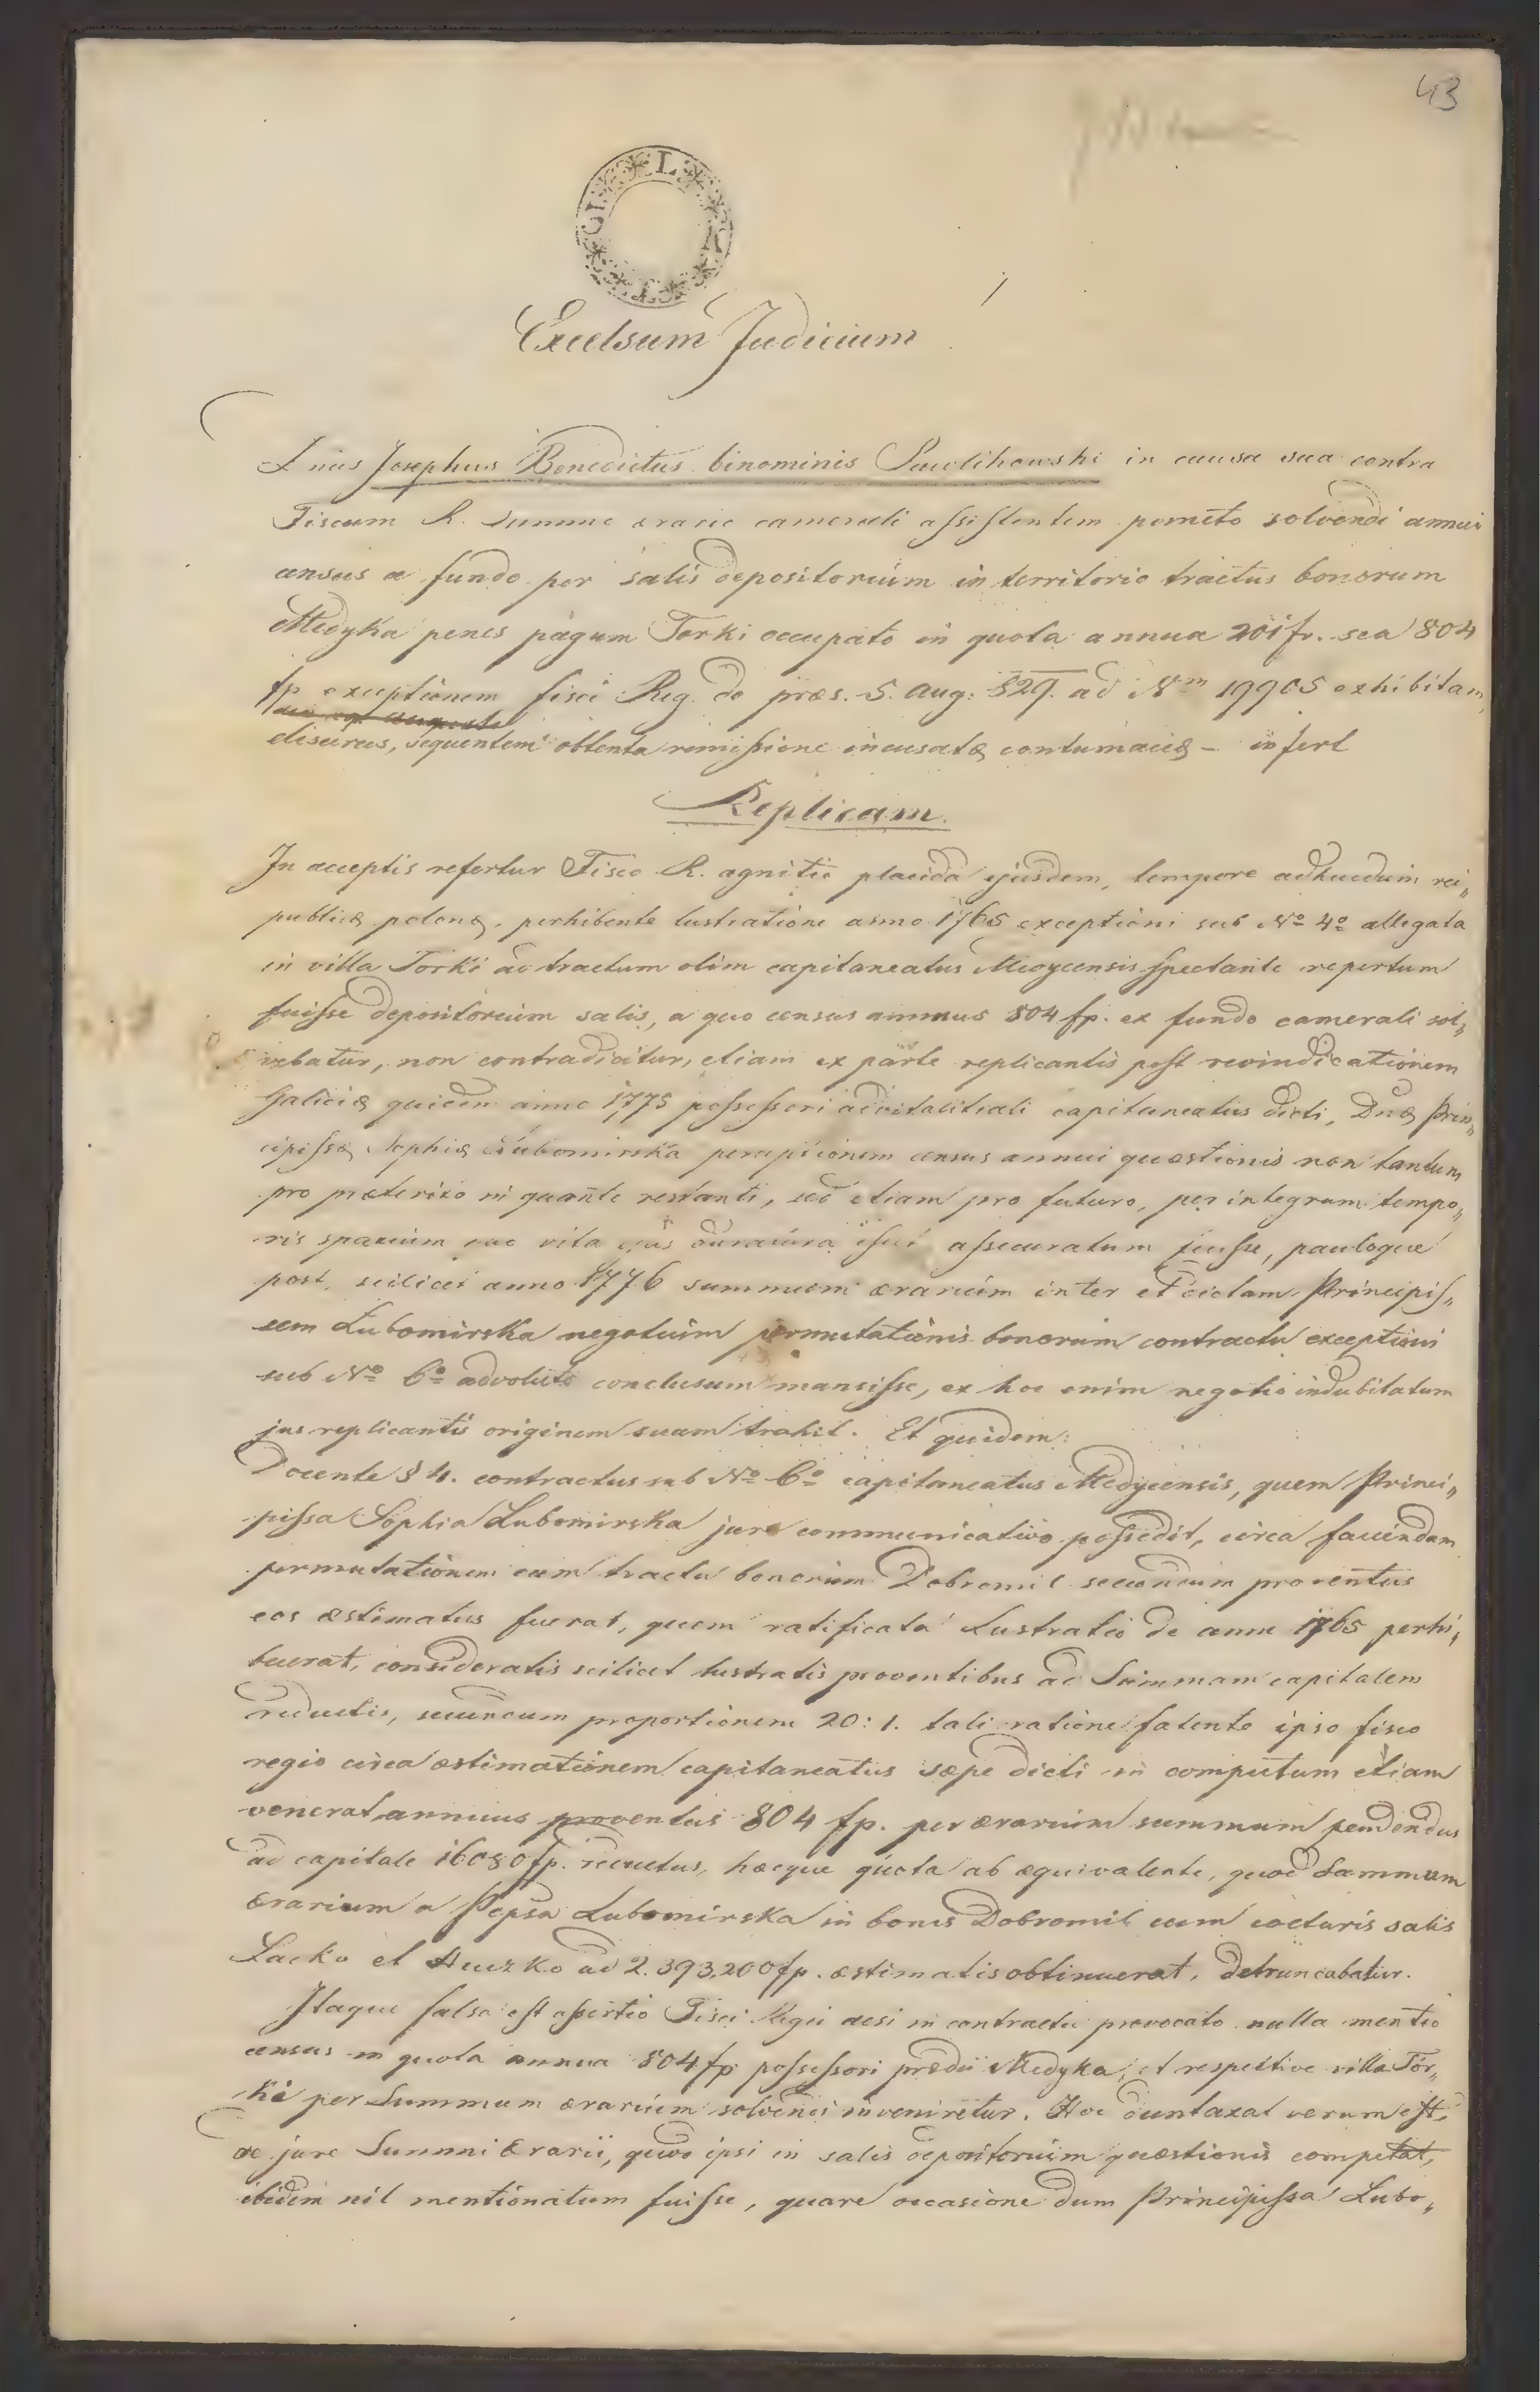 43
Excelsum Judicium
Josephus Benedictus binominis Pawlikowski in causa sua contra
Fiscum R. summo ærario camerali assistentem pometo solvendi annui
census a fundo per salis depositorium in territorio tractus bonorum
Medyka penes pagum Torki occupato in quota annua 201 fr. seu 804
fp exceptionem fisci Reg. de præs. 5. Aug: 829. ad Nrm 19905 exhibitam,
elisurus, sequentem obtenta remissione incusatæ contumaciæ – infert
Replicam.
In acceptis refertur Fisco R. agnitio placida ejusdem, tempore adhucdum rei„
publicæ polonæ, perhibente lustratione anno 1765 exceptioni sub No 4o allegata
in villa Torki ad tractum olim capitaneatus Medycensis spectante repertum
fuisse depositorium salis, a quo census annuus 804 fp. ex fundo camerali sol„
vebatur, non contradicitur, etiam ex parte replicantis post revindicationem
Galiciæ quidem anno 1775 possessori advitalitiali capitaneatus dicti, Dnæ Prin„
cipissæ Sophiæ Lubomirska perceptionem census annui quæstionis non tantum
pro præterito in quante restanti, sed etiam pro futuro, per integrum tempo„
ris spatium vita ejus duratura assecuratum fuisse, pauloque
post, scilicet anno 1776 summum ærarium inter et dictam Principis„
sam Lubomirska negotium permutationis bonorum contractu exceptioni
sub No 6o advoluto conclusum mansisse, ex hoc enim negotio indubitatum
jus replicantis originem suam trahit. Et quidem:
Docente § 4. contractus sub No 6o capitaneatus Medycensis, quem Princi„
pissa Sophia Lubomirska jure communicativo possedit, circa faciendam
permutationem cum tractu bonorum Dobromil secundum proventus
eos æstimatus fuerat, quem ratificata Lustratio de anno 1765 perhi„
buerat, consideratis scilicet lustratis proventibus ad Summam capitalem
reductis, secundum proportionem 20:1. tali ratione fatente ipso fisco
regio circa æstimationem capitaneatus sæpe dicti in computum etiam
venerat annuus proventus 804 fp. per ærarium summum pendendus
ad capitale 16080 fp. reductus, hæcque quota ab æquivalente, quod Summum
ærarium a Ppssa Lubomirska in bonis Dobromil cum cocturis salis
Lacko et Huczko ad 2.393,200 fp. æstimatis obtinuerat, detruncabatur.
Itaque falsa est assertio Fisci Regii acsi in contractu provocato nulla mentio
census in quota annua 804 fp possessori prædii Medyka, et respective villæ Tor„
ki per Summum ærarium solvendi inveniretur. Hoc duntaxat verum est,
de jure Summi Ærarii, quod ipsi in salis depositorium quæstionis competat,
ibidem nil mentionatum fuisse, quare occasione dum Principissa Lubo„